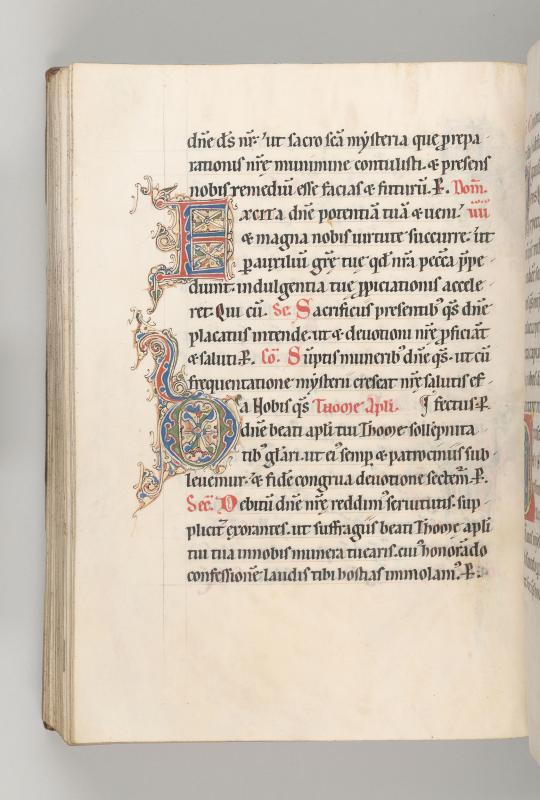 dn̄e d̄s nr̄. ut sacrosc̄a mẏsteria que p̄repa
rationis nr̄e munimine contulisti. & presens
nobis remediū esse facias & futurū. P̄. Dom̄.
Excita dn̄e potentiā tuā & ueni. iiii
& magna nobis uirtute succurre. ut
p̄ auxiliū gr̄e tue qd̄ nr̄a pecc̄a p̄pe
diunt. indulgentia tue p̄piciationis accele
ret. Qui cū. Sc̄. Sacrificiis presentib; qs̄ dn̄e
placatus intende. ut & deuotioni nr̄e p̄ficiāt
& saluti. P̄. Cō. Sūptis munerib; dn̄e qs̄. ut cū
frequentatione mẏsterii crescat nr̄e salutis ef
Da nobis qs̄ Thome apl̄i. fectus. P̄.
dn̄e beati apl̄i tui Thome sollēpnita
tib; gl̄ari. ut ei᷒ semp̄ & patrociniis sub
leuemur. & fidē congrua deuotione sectem᷒. P̄.
Sec̄. Debitū dn̄e nr̄e reddim᷒ seruitutis. sup
plicit̄ exorantes. ut suffragiis beati Thome apl̄i
tui tua in nobis munera tuearis. cui᷒ honorādo
confessionē laudis tibi hostias immolam᷒. P̄.